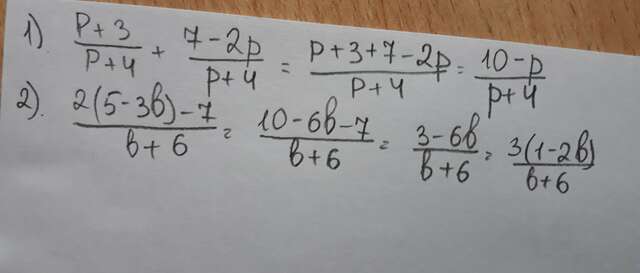 1). (p+3)/(p+4) + (7-2p)/(p+4) = (p+3+7-2p)/(p+4) = (10-p)/(p+4)
2). (2(5-3b)-7)/(b+6) = (10-6b-7)/(b+6) = (3-6b)/(b+6) = (3(1-2b))/(b+6)